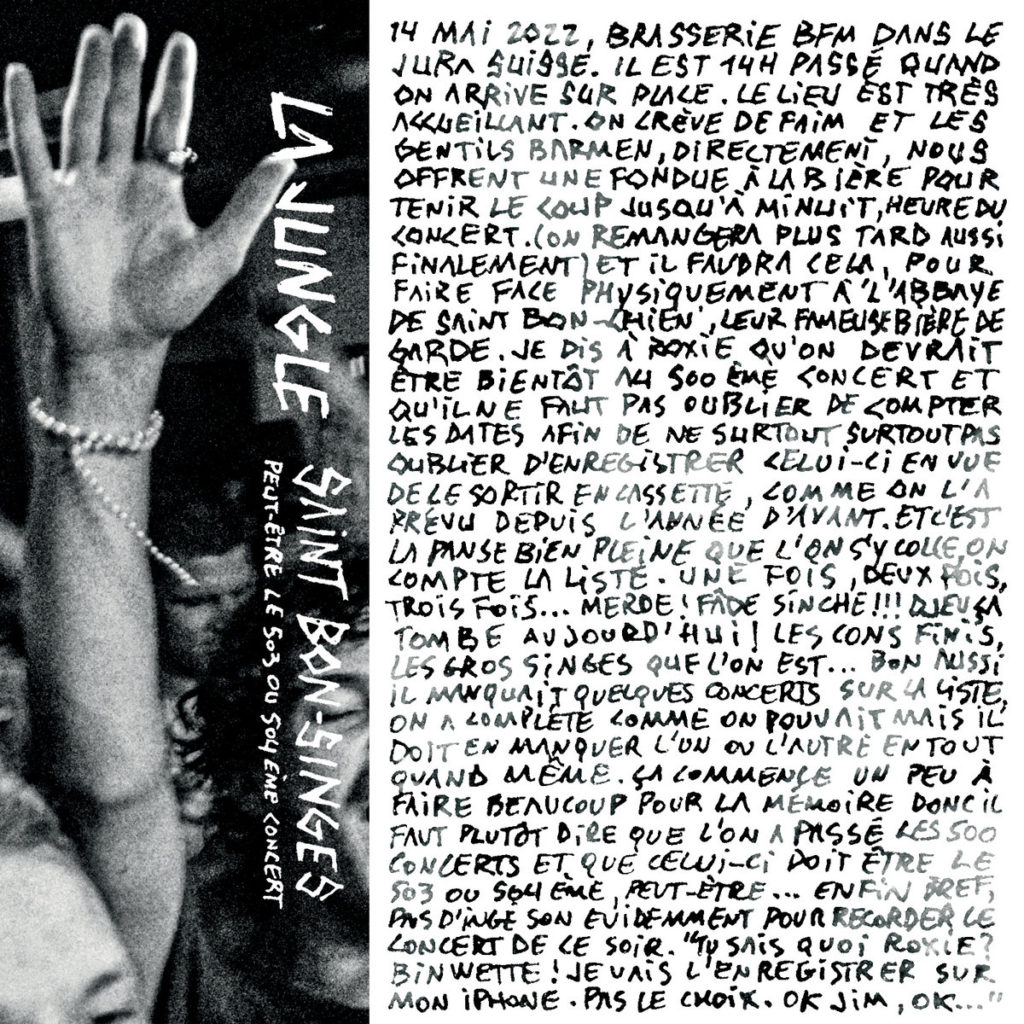 LA JUNGLE
SAINT BON-SINGES
PEUT-ÊTRE LE 503 OU 504 ÈME CONCERT
14 MAI 2022, BRASSERIE BFM DANS LE
JURA SUISSE. IL EST 14H PASSÉ QUAND
ON ARRIVE SUR PLACE. LE LIEU EST TRÈS
ACCUEILLANT. ON CRÈVE DE FAIM ET LES
GENTILS BARMEN, DIRECTEMENT, NOUS
OFFRENT UNE FONDUE À LA BIÈRE POUR
TENIR LE COUP JUSQU'À MINUIT, HEURE DU
CONCERT. (ON REMANGERA PLUS TARD AUSSI
FINALEMENT) ET IL FAUDRA CELA, POUR
FAIRE FACE PHYSIQUEMENT À 'L'ABBAYE
DE SAINT BON-CHIEN', LEUR FAMEUSE BIÈRE DE
GARDE. JE DIS À ROXIE QU'ON DEVRAIT
ÊTRE BIENTÔT AU 500 ÈME CONCERT ET
QU'IL NE FAUT PAS OUBLIER DE COMPTER
LES DATES AFIN DE NE SURTOUT SURTOUT PAS
OUBLIER D'ENREGISTRER CELUI-CI EN VUE
DE LE SORTIR EN CASSETTE, COMME ON L'A
PRÉVU DEPUIS L'ANNÉE D'AVANT. ET C'EST
LA PANSE BIEN PLEINE QUE L'ON S'Y COLLE, ON
COMPTE LA LISTE. UNE FOIS, DEUX FOIS,
TROIS FOIS... MERDE! FÂDE SINCHE!!! DJEU ÇA
TOMBE AUJOURD'HUI! LES CONS FINIS,
LES GROS SINGES QUE L'ON EST... BON AUSSI
IL MANQUAIT QUELQUES CONCERTS SUR LA LISTE,
ON A COMPLÉTÉ COMME ON POUVAIT MAIS IL
DOIT EN MANQUER L'UN OU L'AUTRE EN TOUT
QUAND MÊME. ÇA COMMENCE UN PEU À
FAIRE BEAUCOUP POUR LA MÉMOIRE DONC IL
FAUT PLUTÔT DIRE QUE L'ON A PASSÉ LES 500
CONCERTS ET QUE CELUI-CI DOIT ÊTRE LE
503 OU 504 ÈME, PEUT-ÊTRE... ENFIN BREF,
PAS D'INGE SON EVIDEMMENT POUR RECORDER LE
CONCERT DE CE SOIR. "TU SAIS QUOI ROXIE?
BINWETTE! JE VAIS L'ENREGISTRER SUR
MON IPHONE. PAS LE CHOIX. OK JIM, OK..."